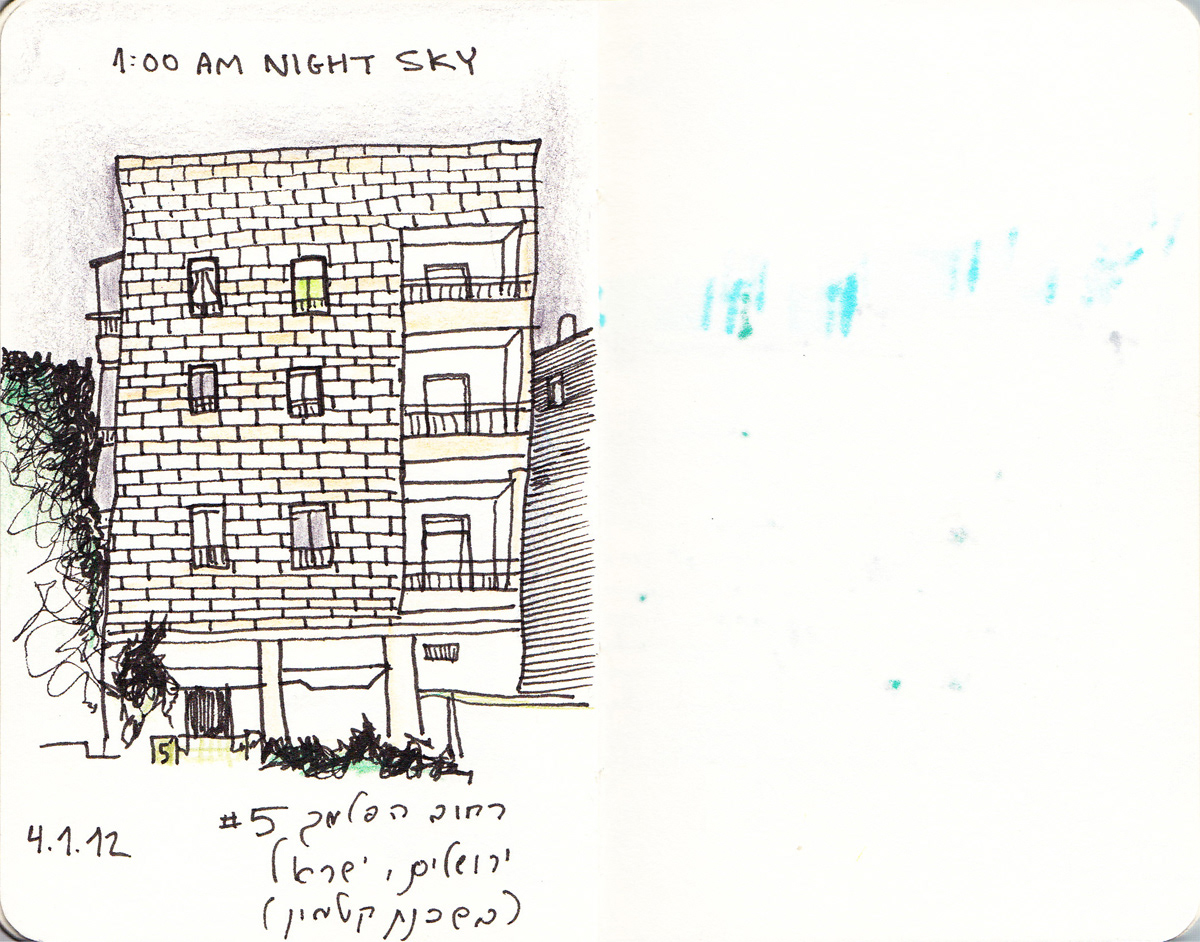 1:00 AM NIGHT SKY
5
רחוב הפלמך 5#
4.1.12
ירושלים, ישראל
(בשכנת קטמון)